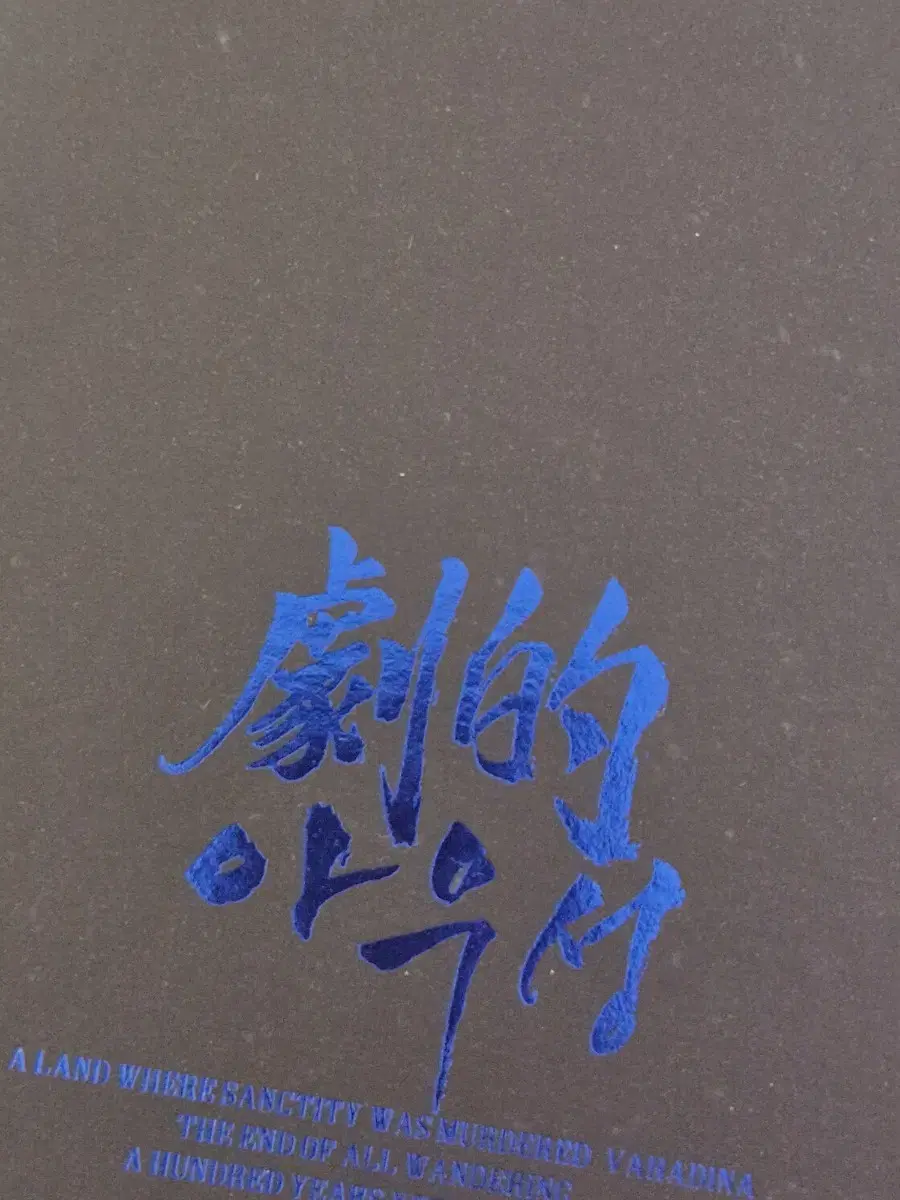 劇的
아우성
A LAND WHERE SANCTITY WAS MURDERED VARADINA
THE END OF ALL WANDERING
A HUNDRED YEARS